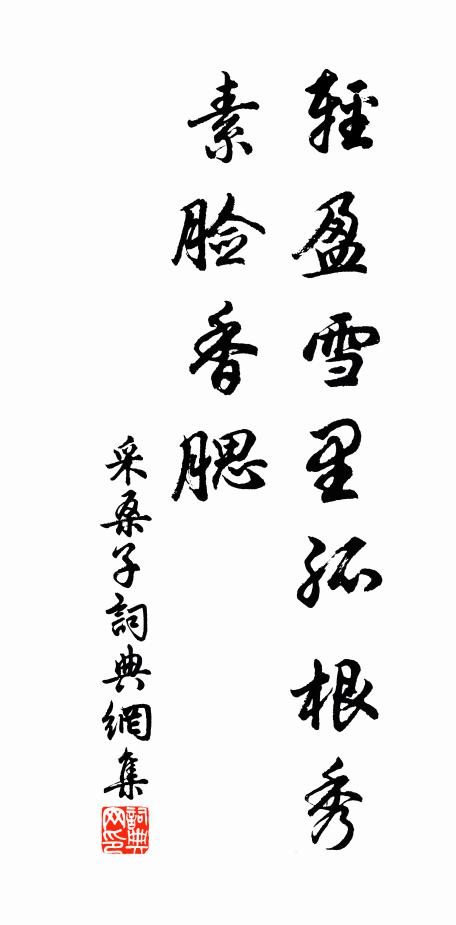 輕盈雪里孤根秀
素脸香腮
采桑子詞典網集
詞典网印